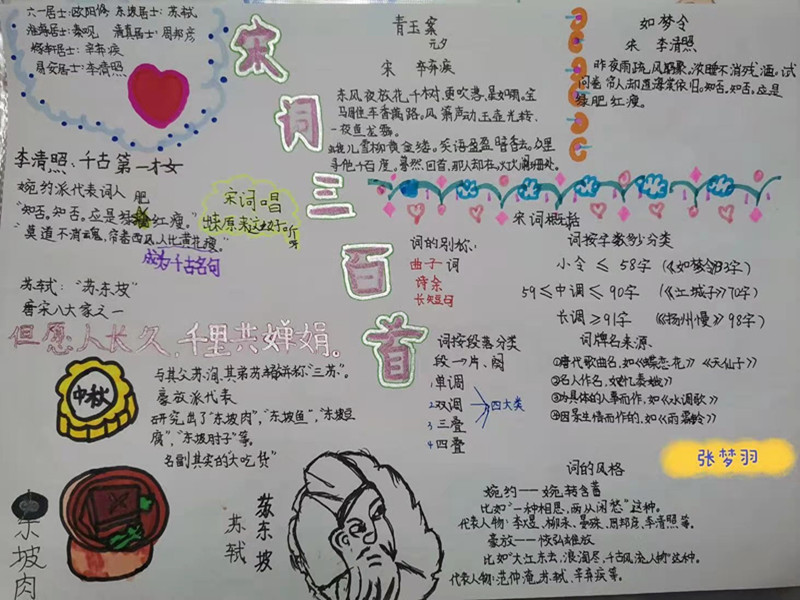 六一居士:欧阳修 东坡居士:苏轼
淮海居士:秦观 清真居士:周邦彦
稼轩居士:辛弃疾
易安居士:李清照
宋词三百首
李清照、千古第一才女
婉约派代表词人
"知否,知否,应是绿肥红瘦。"
"莫道不消魂,帘卷西风,人比黄花瘦。"
成为千古名句
宋词唱
起来原来这么好听呀
苏轼:"苏东坡"
唐宋八大家之一
但愿人长久,千里共婵娟。
中秋
与其父苏洵、其弟苏辙并称"三苏"。
豪放派代表
研究出了"东坡肉","东坡鱼","东坡豆
腐","东坡肘子"等。
名副其实的大吃货"
东坡肉
苏东坡
苏轼
青玉案
元夕
宋 辛弃疾
东风夜放花千树,更吹落,星如雨。宝
马雕车香满路。凤箫声动,玉壶光转,
一夜鱼龙舞。
蛾儿雪柳黄金缕。笑语盈盈暗香去。众里
寻他千百度。蓦然回首,那人却在,灯火阑珊处。
如梦令
宋 李清照
昨夜雨疏风骤,浓睡不消残酒。试
问卷帘人,却道海棠依旧。知否,知否,应是
绿肥红瘦。
宋词概括
词的别称:
曲子词
诗余
长短句
词按字数多少分类
小令 ≤ 58字 (《如梦令》33字)
59≤中调≤90字 (《江城子》70字)
长调≥91字 (《扬州慢》98字)
词按段落分类
段→片、阕
1单调
2双调
3三叠
4四叠
四大类
词牌名来源、
①唐代歌曲名,如《蝶恋花》《天仙子》
②名人作名,如《忆秦娥》
③为具体的人事而作,如《水调歌》
④因景生情而作的,如《雨霖铃》
张梦羽
词的风格
婉约——婉转含蓄
比如"一种相思,两处闲愁"这种。
代表人物:李煜、柳永、晏殊、周邦彦、李清照等。
豪放——恢弘雄放
比如"大江东去,浪淘尽,千古风流人物"这种。
代表人物:范仲淹、苏轼、辛弃疾等。